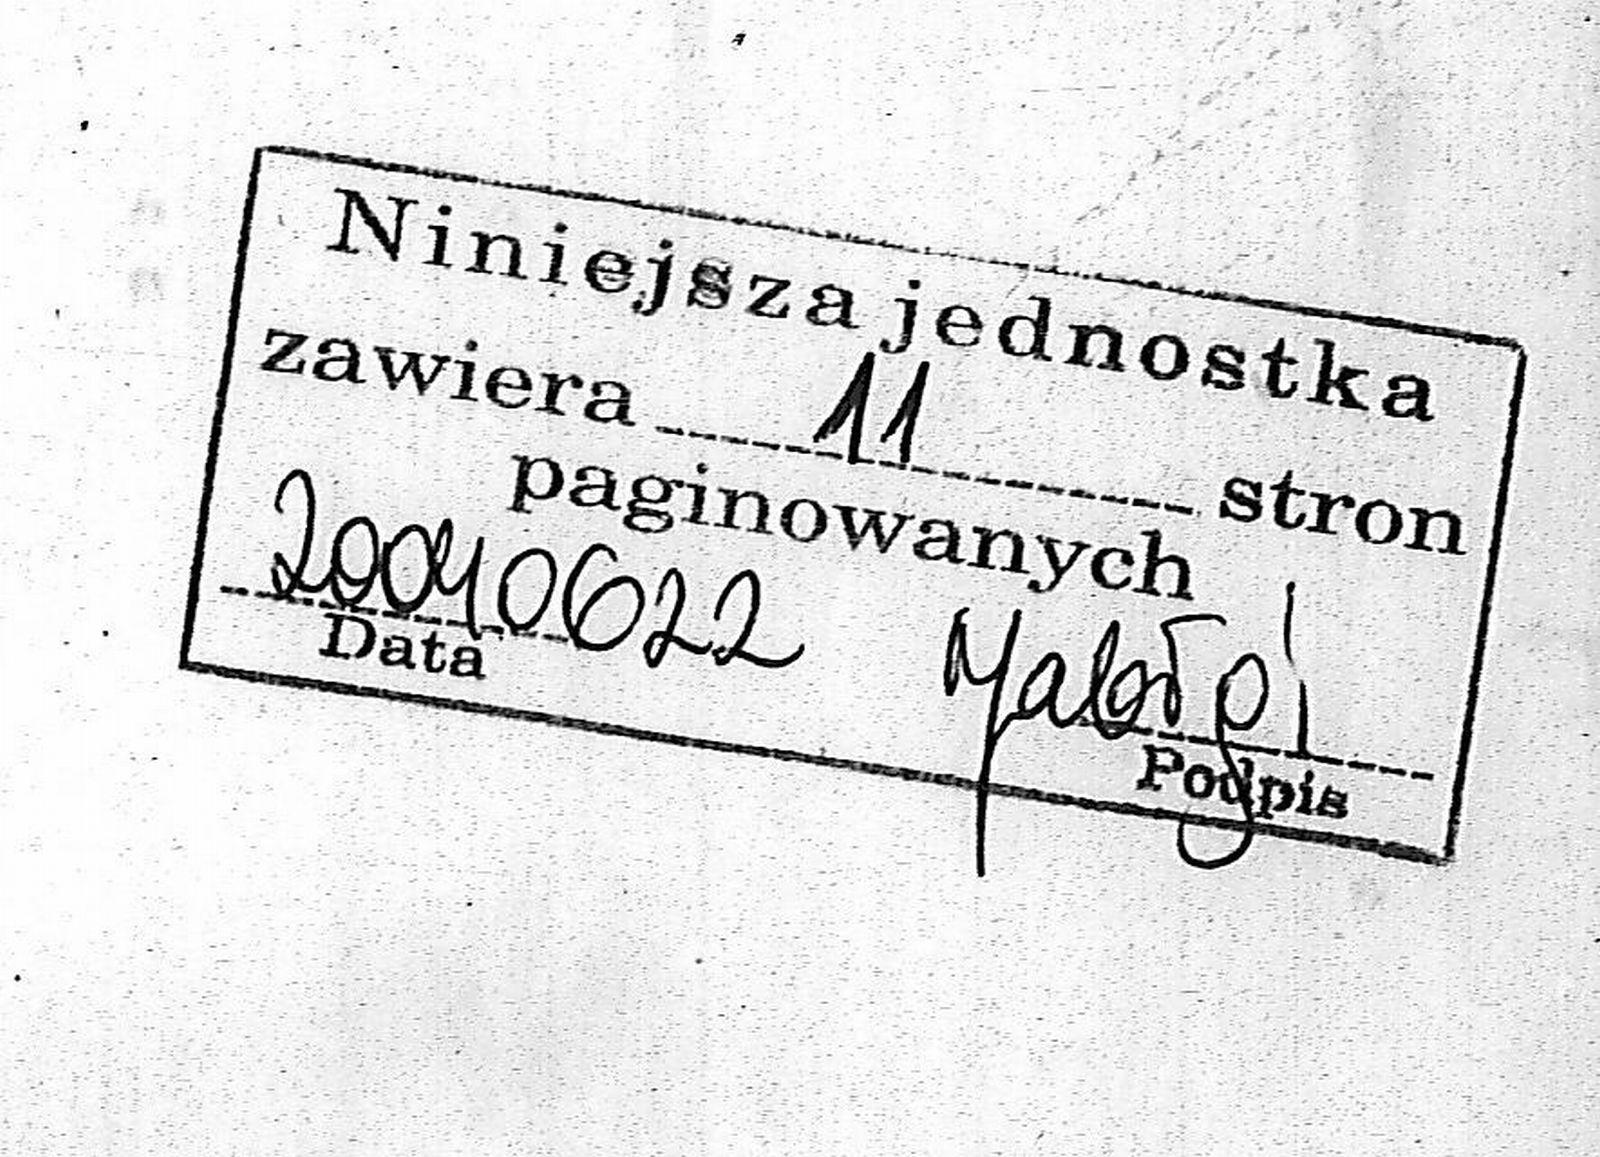 Niniejsza jednostka
zawiera 11 stron
paginowanych
20040622
Data
Podpis